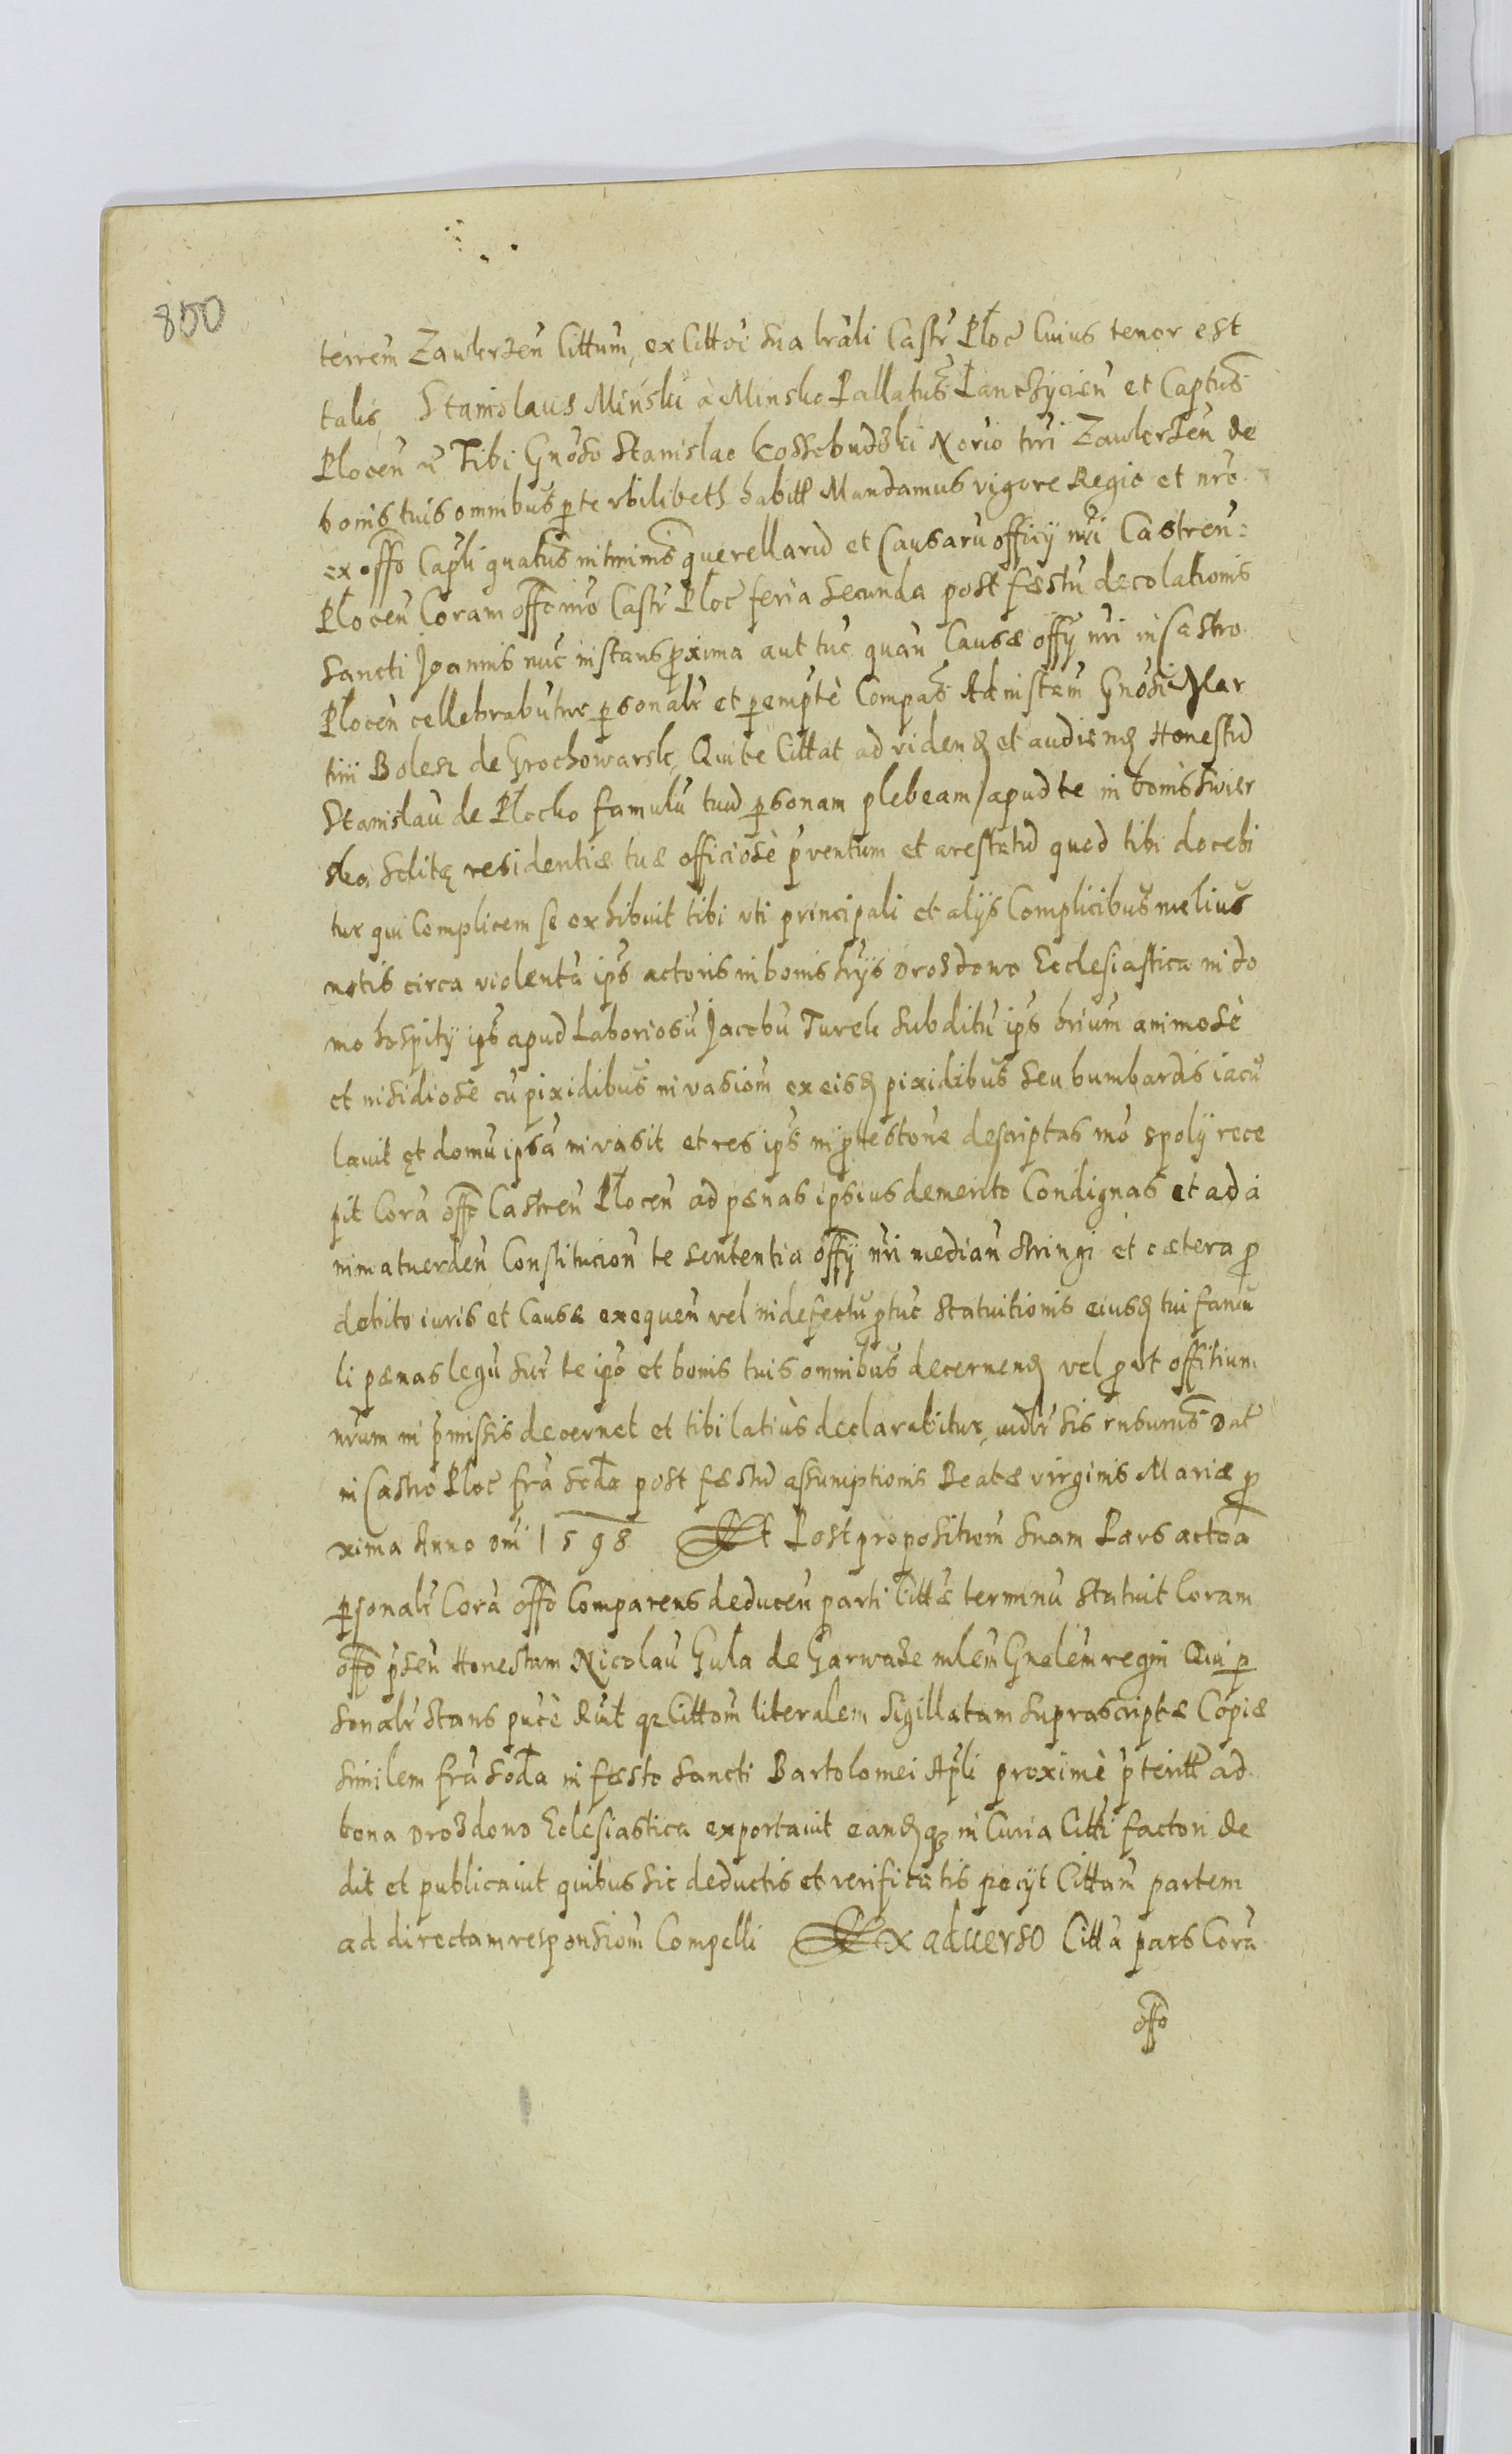 850
terrem Zawkrzen̄ Cittum, ex Cittōi sua lrāli Castr̄ Płoc̄ Cuius tenor est
talis, Stanislaus Minsku à Minsko Pallatus Łancżycien̄ et Captus
Plocen̄ Tibi Gnōso Stanislao Kossobudzki Nōrio trri Zawkrzen̄ de
bonis tuis omnibus per te vbilibeth habitt Mandamus vigore Regio et nrō
ex offō Capli quatus in tminis querellarū et Causarū officij nrī Castren:
Plocen̄ Coram offo nrō Castr̄ Płoc̄ feria Secunda post festū decolationis
Sancti Joannis nūc instans proxima aut tūc quan̄ Causæ offÿ nrī in Castro
Płocen̄ cellebrabūtur personalr̄ et perempte Compas Ad instam̄ Gnōsi Mar
tini Bolesz de Grochowarsk, Qui te Cittat ad viden et audien Honestū
Stanislaū de Plocko famulū tuū personam plebeam / apud te in bonis Swier
sko Solitę residentiæ tuæ officiosè pventum et arestatū quod tibi docebi
tur qui Complicem se exhibuit tibi vti principali et alÿs Complicibus melius
notis circa violentā ips actoris in bonis hrÿs Drozdowo Ecclesiastica in do
mo hospitÿ ips apud Laboriosū Jacobū Turek Subditū ips hrium animosè
et insidiosè cū pixidibus invasiom̄ ex eisd pixidibus seu bumbardis iacu
lauit et domū ipsā invasit et res ips in protestone descriptas mō spolÿ rece
pit Corā offō Castren̄ Płocen̄ ad pænas ipsius demerito Condignas et ad a
nimatuerden̄ Constitucion̄ te sententia offÿ nrī median̄ stringi et cætera pro
debito iuris et Causæ exequen̄ vel in defectu protūc Statuitionis eiusd tui famu
li pænas legū sur̄ te ipo et bonis tuis omnibus decernend vel prout offitium
nrūm in pmissis decernet et tibi latiùs declarabitur, iudlr̄ sis rnsurus Dat̄
in Castro Płoc̄ frā scda post festū assumptionis Beatæ virginis Mariæ pro
xima Anno Dni 1598 Et Post propositiom̄ suam Pars actōa
personalr̄ Corā offō Comparens deducen̄ parti Cittæ terminū Statuit Coram
offō psen̄ Honestum Nicolaū Gula de Garwacz mlem̄ Gnalem̄ regni Qui per
sonalr̄ stans pucè Rūit qz Cittom̄ literalem Sigillatam suprascriptæ Copiæ
similem frā scda in festo Sancti Bartolomei Apli proximè pteritt ad
bona Drozdowo Eclesiastica exportauit eandqz in Curia Citti factori de
dit et publicauit quibus sic deductis et verificatis pecijt Cittam̄ partem
ad directam responsiom̄ Compelli Ex aduerso Citta pars Corā
offō